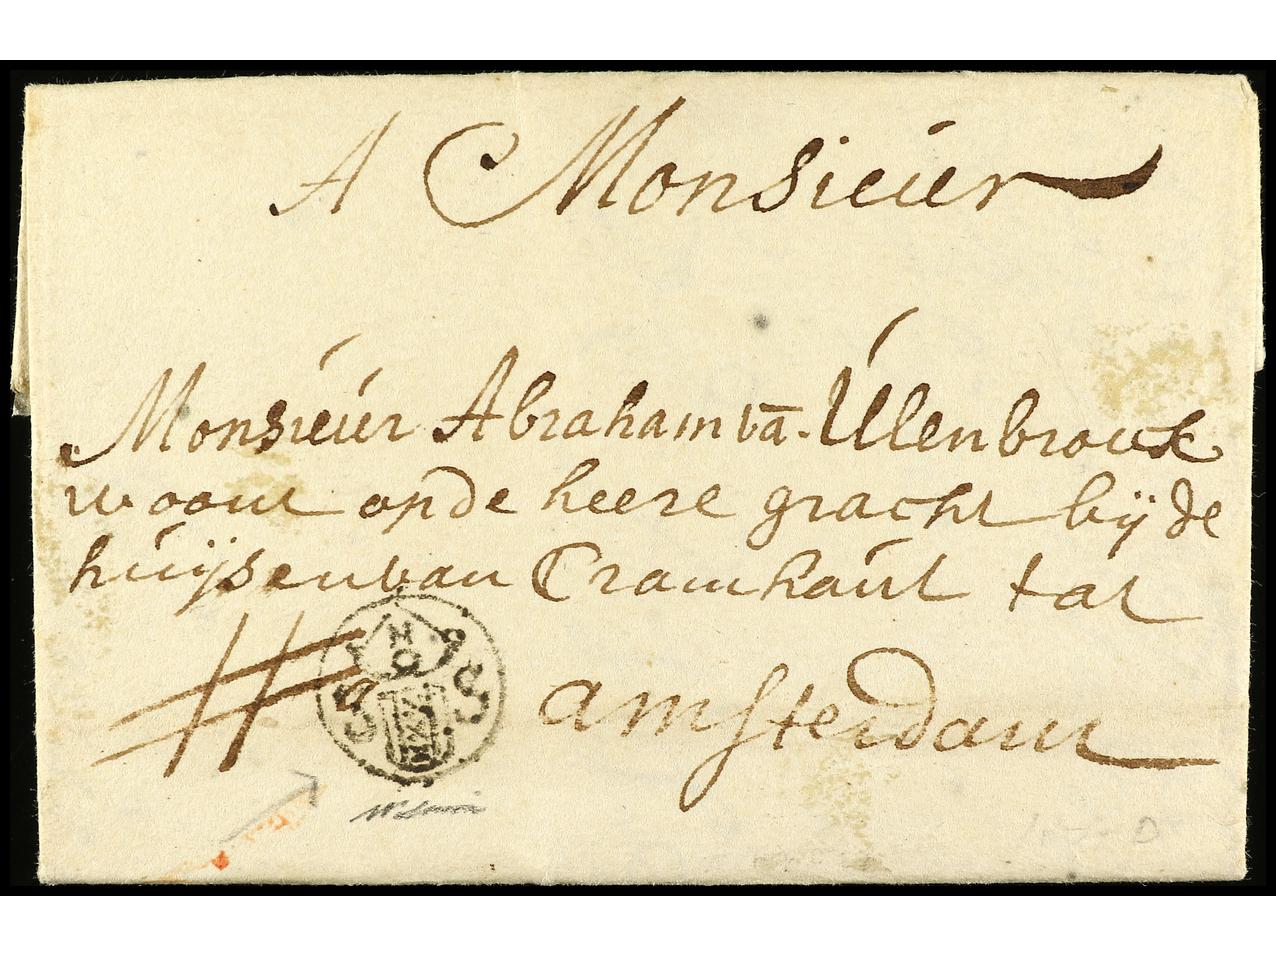 A Monsieúr
Monsieúr Abraham vā. Úlenbrouck
woont op de heere gracht bÿ de
húÿsen van Cramhaút tot
amsterdam
H
O
3 S